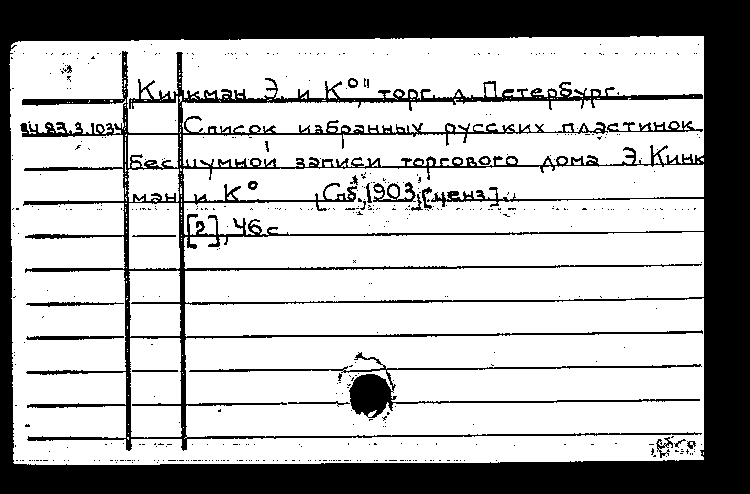 „Кинкман Э. и К°", торг. д. Петербург.
34.83.3.1034 Список избранных русских пластинок
бесшумной записи торгового дома Э. Кинк
ман и К° Спб, 1903, [ценз.].
[2], 46 с